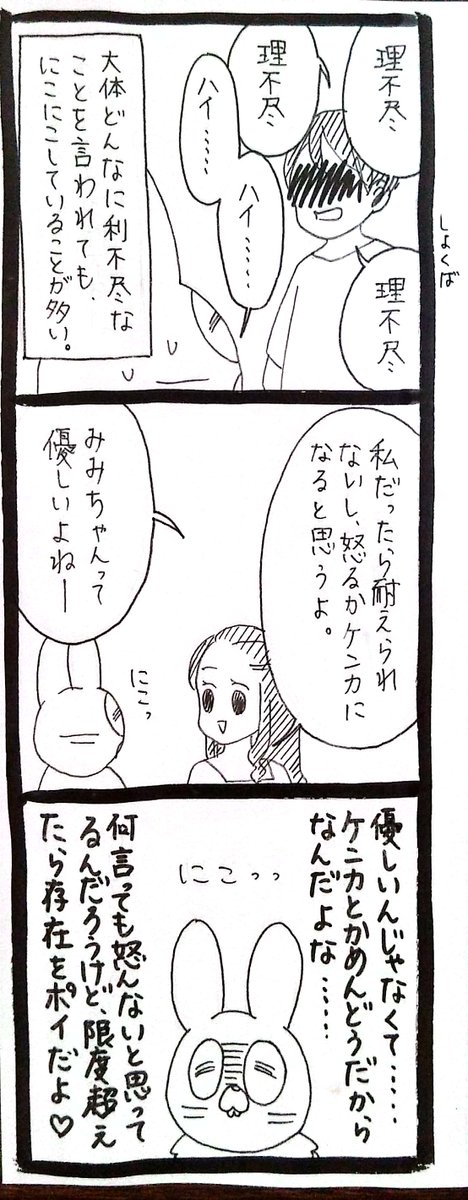 しょくば
理不尽
理不尽
理不尽
ハイ……
ハイ……
大体どんなに利不尽な
ことを言われても、
にこにこしていることが多い。
私だったら耐えられ
ないし、怒るかケンカに
なると思うよ。
みみちゃんって
優しいよねー
にこっ
優しいんじゃなくて……
ケンカとかめんどうだから
なんだよな……
にこっっ
何言っても怒んないと思って
るんだろうけど、限度超え
たら存在をポイだよ♡